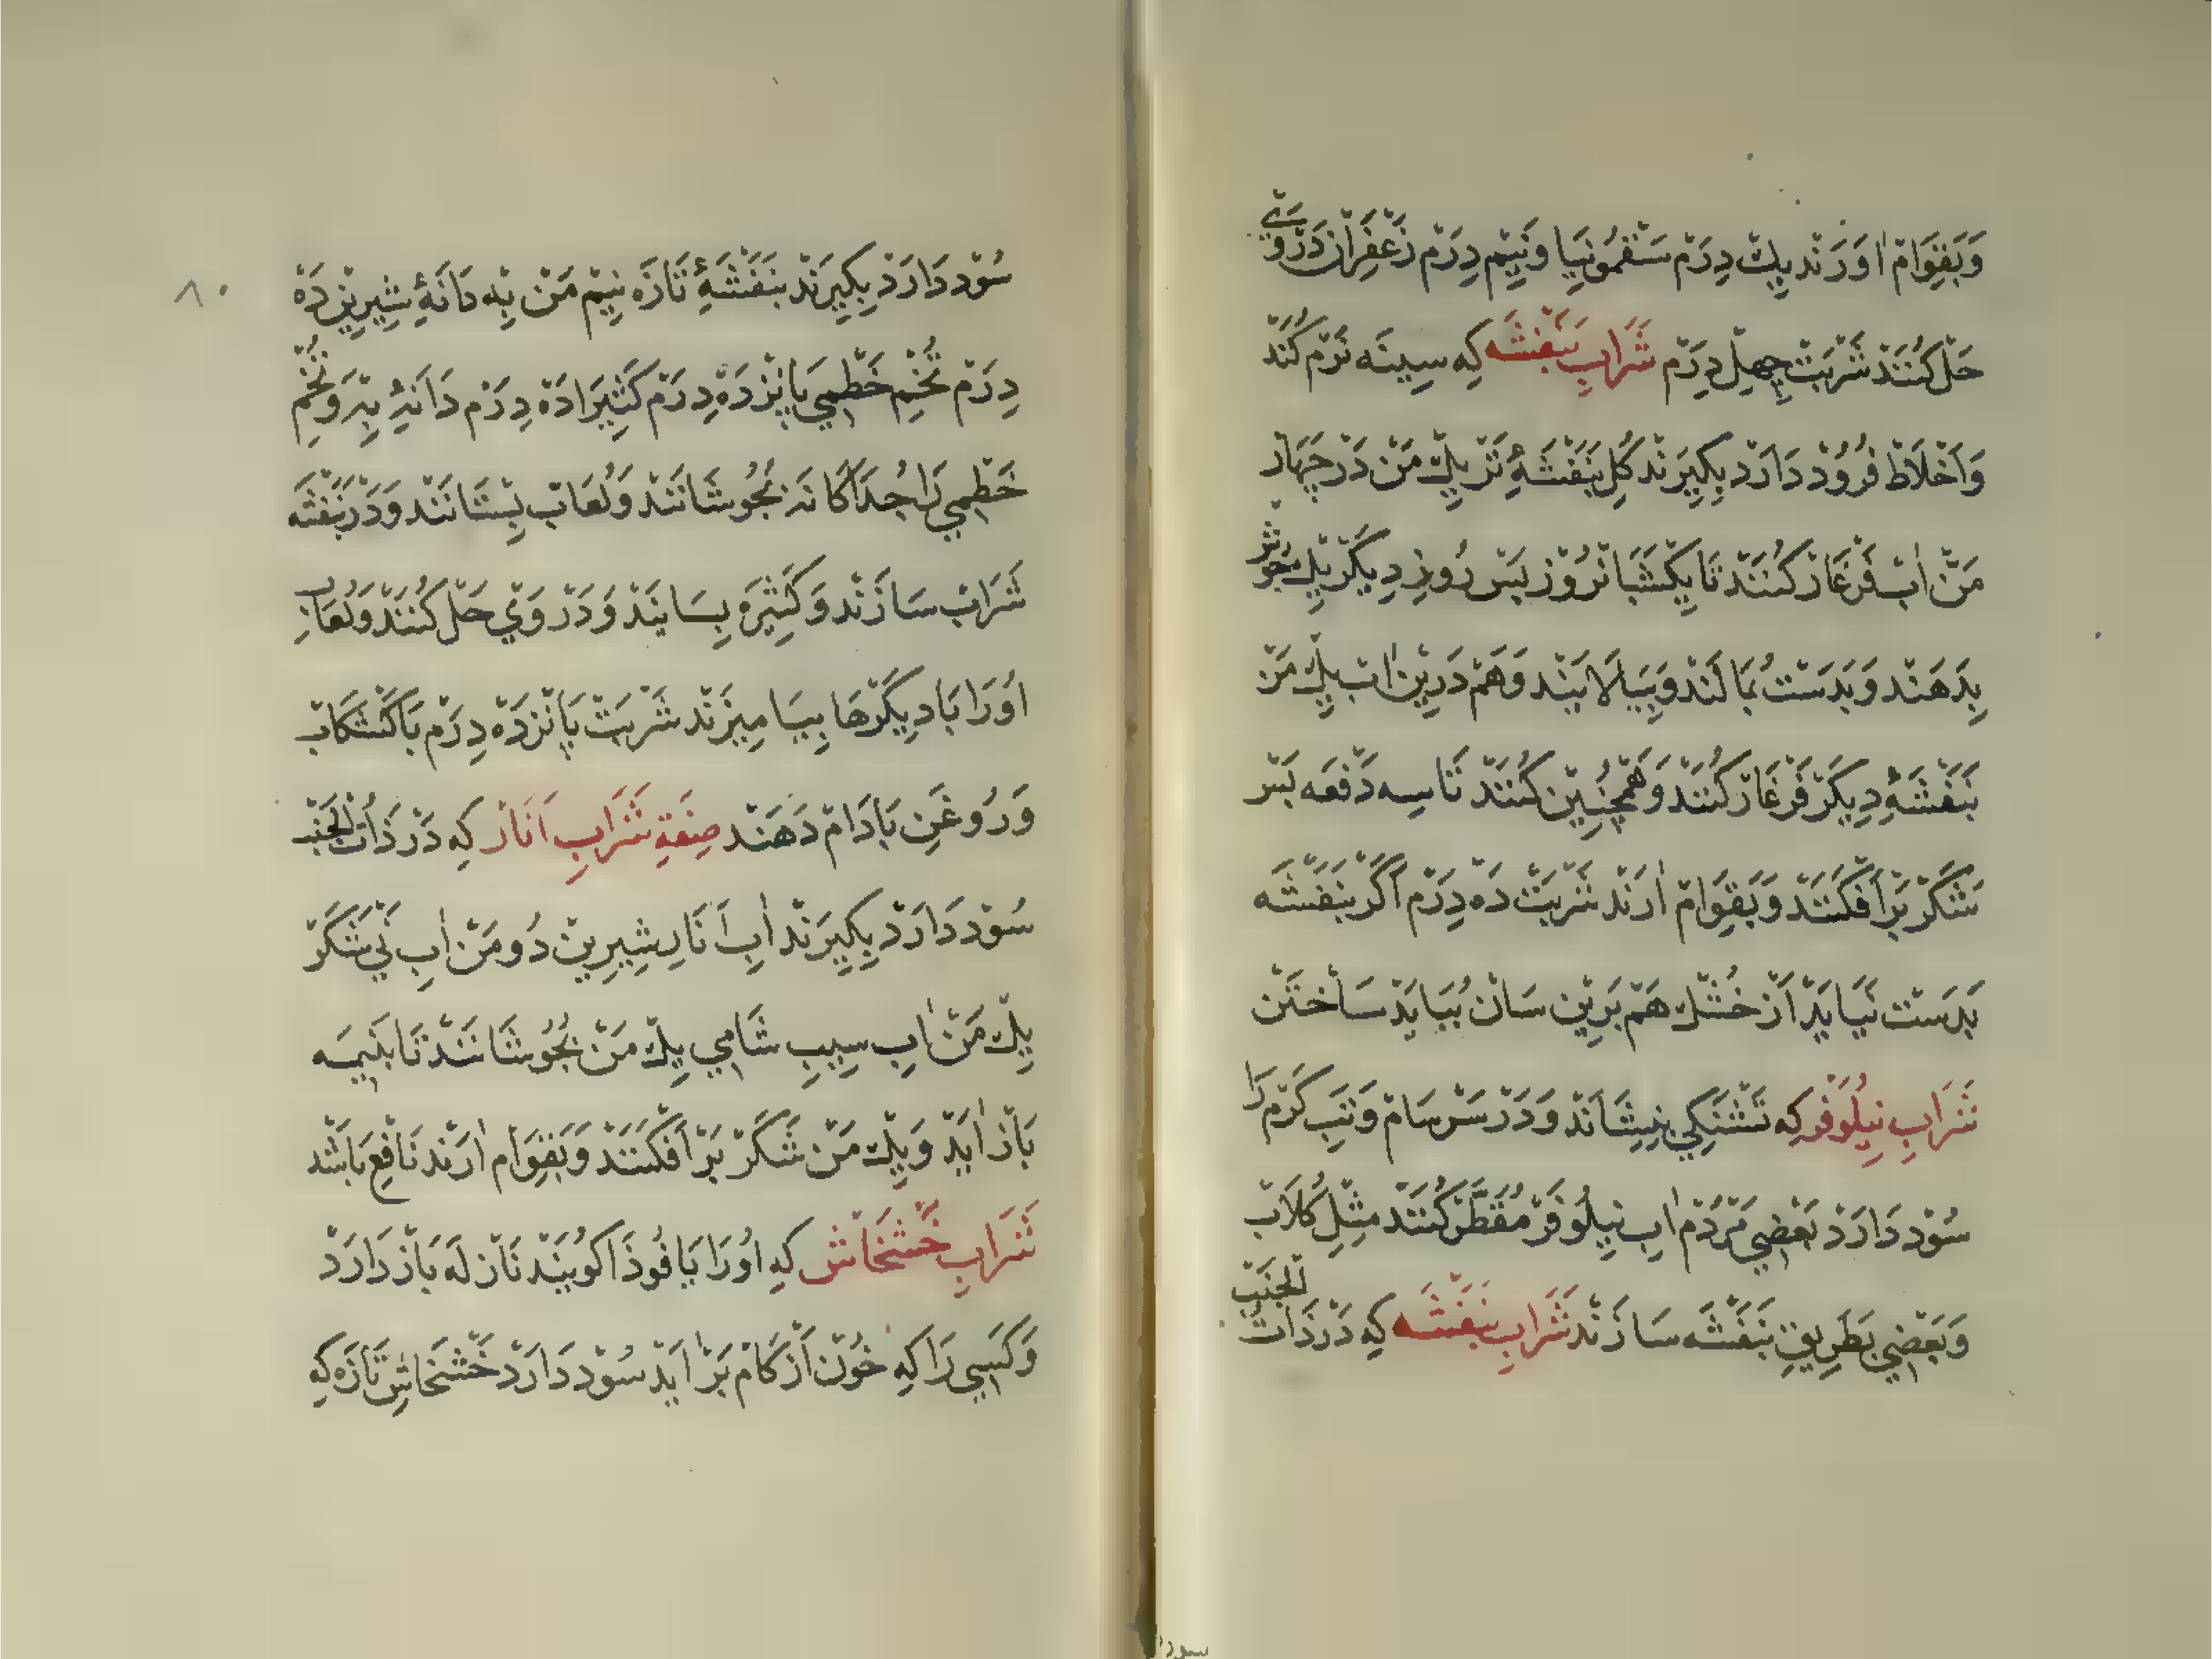 وَبَقِوَامْ اٰوَرَنْد يِكْ دِرَمْ سَقْمُونِيَا وَنِيْم دِرَمْ زَعْفِرَان دَرْوَيْ
حَلْ كُنَنْد شَرْبَتْ چِهِلْ دِرَمْ شَرَابِ بَنَفْشَه كِه سِينَه نَرْم كُنَدْ
وَاَخْلَاطْ فُرُوْد دَارَدْ بِكِيرَنْد كُلِ بَنَفْشَهٔ تَرْ يِكْ مَنْ دَرْ چَهَارْ
مَنْ اٰبْ فَرْغَارْ كُنَنْد تَا يِكْشَبَانْرُوْز پَسْ رُوزِ دِيكَرْ يِكْ جُوْشْ
بِدَهَنْد وَبَدَسْتْ بُمَالَنْد وَبِيَالَايَنْد وَهَمْ دَرِيْن اٰبْ يِكْ مَنْ
بَنَفْشَهٔ دِيكَرْ فَرْغَارْ كُنَنْد وَهَمْچُنِيْن كُنَنْد تَا سِه دَفْعَه پَسْ
شَكَرْ بَرْاَفْكَنَنْد وَبَقِوَامْ اٰرَنْد شَرْبَتْ دَه دِرَمْ اَكَرْ بَنَفْشَه
بَدَسْتْ نَيَايَدْ اَزْ خُشْكْ هَمْ بَرِيْن سَانْ بُبَايَدْ سَاخْتَنْ
شَرَابِ نِيلُوْفَرْ كِه تَشْنَكِي بِنِشَانَدْ وَدَرْ سَرْسَامْ وَتَبِ كَرْمْ رَا
سُوْد دَارَدْ بَعْضِي مَرْدُمْ اٰبِ نِيلُوْفَرْ مُقَطَّرْ كُنَنْد مِثْلِ كُلَابْ
وَبَعْضِي بَطَرِيقِ بَنَفْشَه سَازَنْد شَرَابِ بَنَفْشَه كِه دَرْ ذَاتُ الْجَنْبْ
سُوْد دَارَدْ بِكِيرَنْد بَنَفْشَهٔ تَازَه نِيْم مَنْ بِه دَانَهٔ شِيرِيْن دَهْ
دِرَمْ تُخْمِ خَطْمِي پَانْزدَه دِرَمْ كَثِيرَا دَهْ دِرَمْ دَانَهٔ بِهْ وَتُخْمِ
خَطْمِي رَا جُدَاكَانَه بُجُوشَانَنْد وَلُعَابْ بِسْتَانَنْد وَدَرْ بَنَفْشَه
شَرَابْ سَازَنْد وَكَثِيْرَه بِسَايَنْد وَدَرْ وَيْ حَلْ كُنَنْد وَلُعَابِ
اُوْرَا بَا دِيكَرْهَا بِيَامِيزَنْد شَرْبَتْ پَانْزدَه دِرَمْ بَاكَشْكَابْ
وَرُوْغَنِ بَادَامْ دَهَنْد صِنْعَةِ شَرَابِ اَنَارْ كِه دَرْ ذَاتُ الْجَنْبْ
سُوْد دَارَدْ بِكِيرَنْد اٰبِ اَنَارِ شِيرِيْن دُو مَنْ اٰبِ نَيْ شَكَرْ
يِكْ مَنْ اٰبِ سِيبِ شَامِي يِكْ مَنْ بُجُوشَانَنْد تَا بَنِيمَه
بَازْ اٰيَدْ وَيِكْ مَنْ شَكَرْ بَرْاَفْكَنَنْد وَبَقِوَامْ اٰرَنْد نَافِعْ بَاشَد
شَرَابِ خَشْخَاشْ كِه اُوْرَا يَاقُوذَا كُويَنْد نَازلَه بَازْ دَارَدْ
وَكَسِي رَا كِه خُوْن اَزْ كَامْ بَرْ اٰيَدْ سُوْد دَارَدْ خَشْخَاشِ تَازَه كِه
۸۰